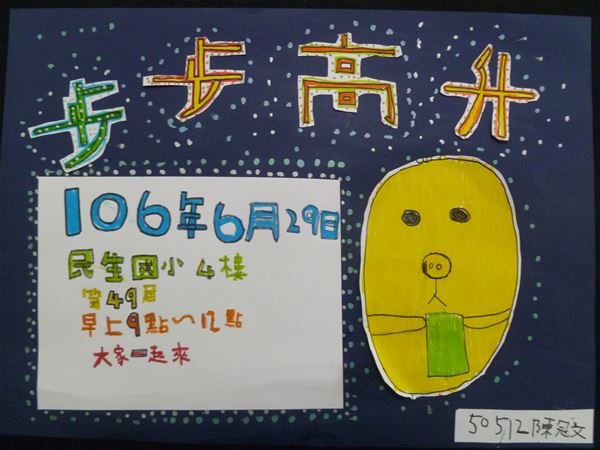 步步高升
106年6月29日
民生國小 4樓
第49屆
早上9點~12點
大家一起來
50512陳冠文